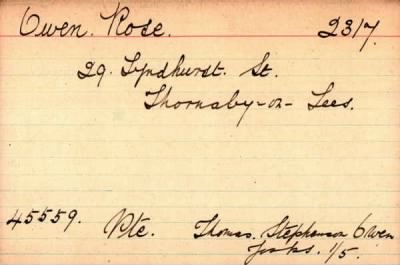 Owen. Rose. 2317.
29. Lyndhurst. St.
Thornaby-on-Tees.
45559. Pte. Thomas. Stephenson Owen
Yorks. 1/5.